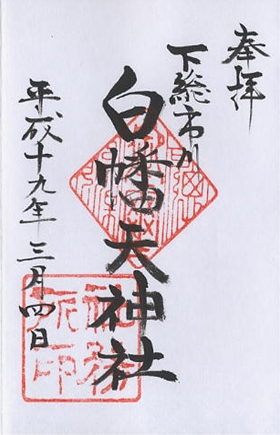 奉拝
下総市川
白幡天神社
平成十九年三月四日